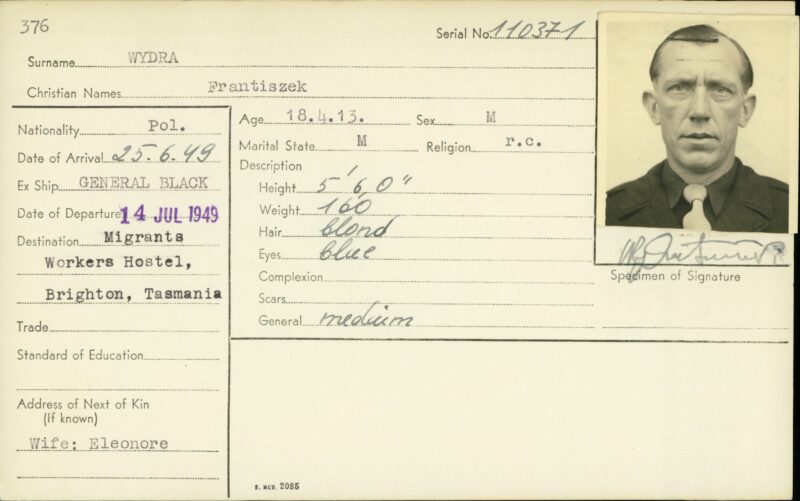 376
Serial No. 110371
Surname WYDRA
Christian Names Frantiszek
Nationality Pol.
Date of Arrival 25.6.49
Ex Ship GENERAL BLACK
Date of Departure 14 JUL 1949
Destination Migrants
Workers Hostel,
Brighton, Tasmania
Trade
Standard of Education
Address of Next of Kin
(If known)
Wife: Eleonore
Age 18.4.13. Sex M
Marital State M Religion r.c.
Description
Height 5' 6,0"
Weight 160
Hair blond
Eyes blue
Complexion
Scars
General medium
Specimen of Signature
S. MCD. 2085